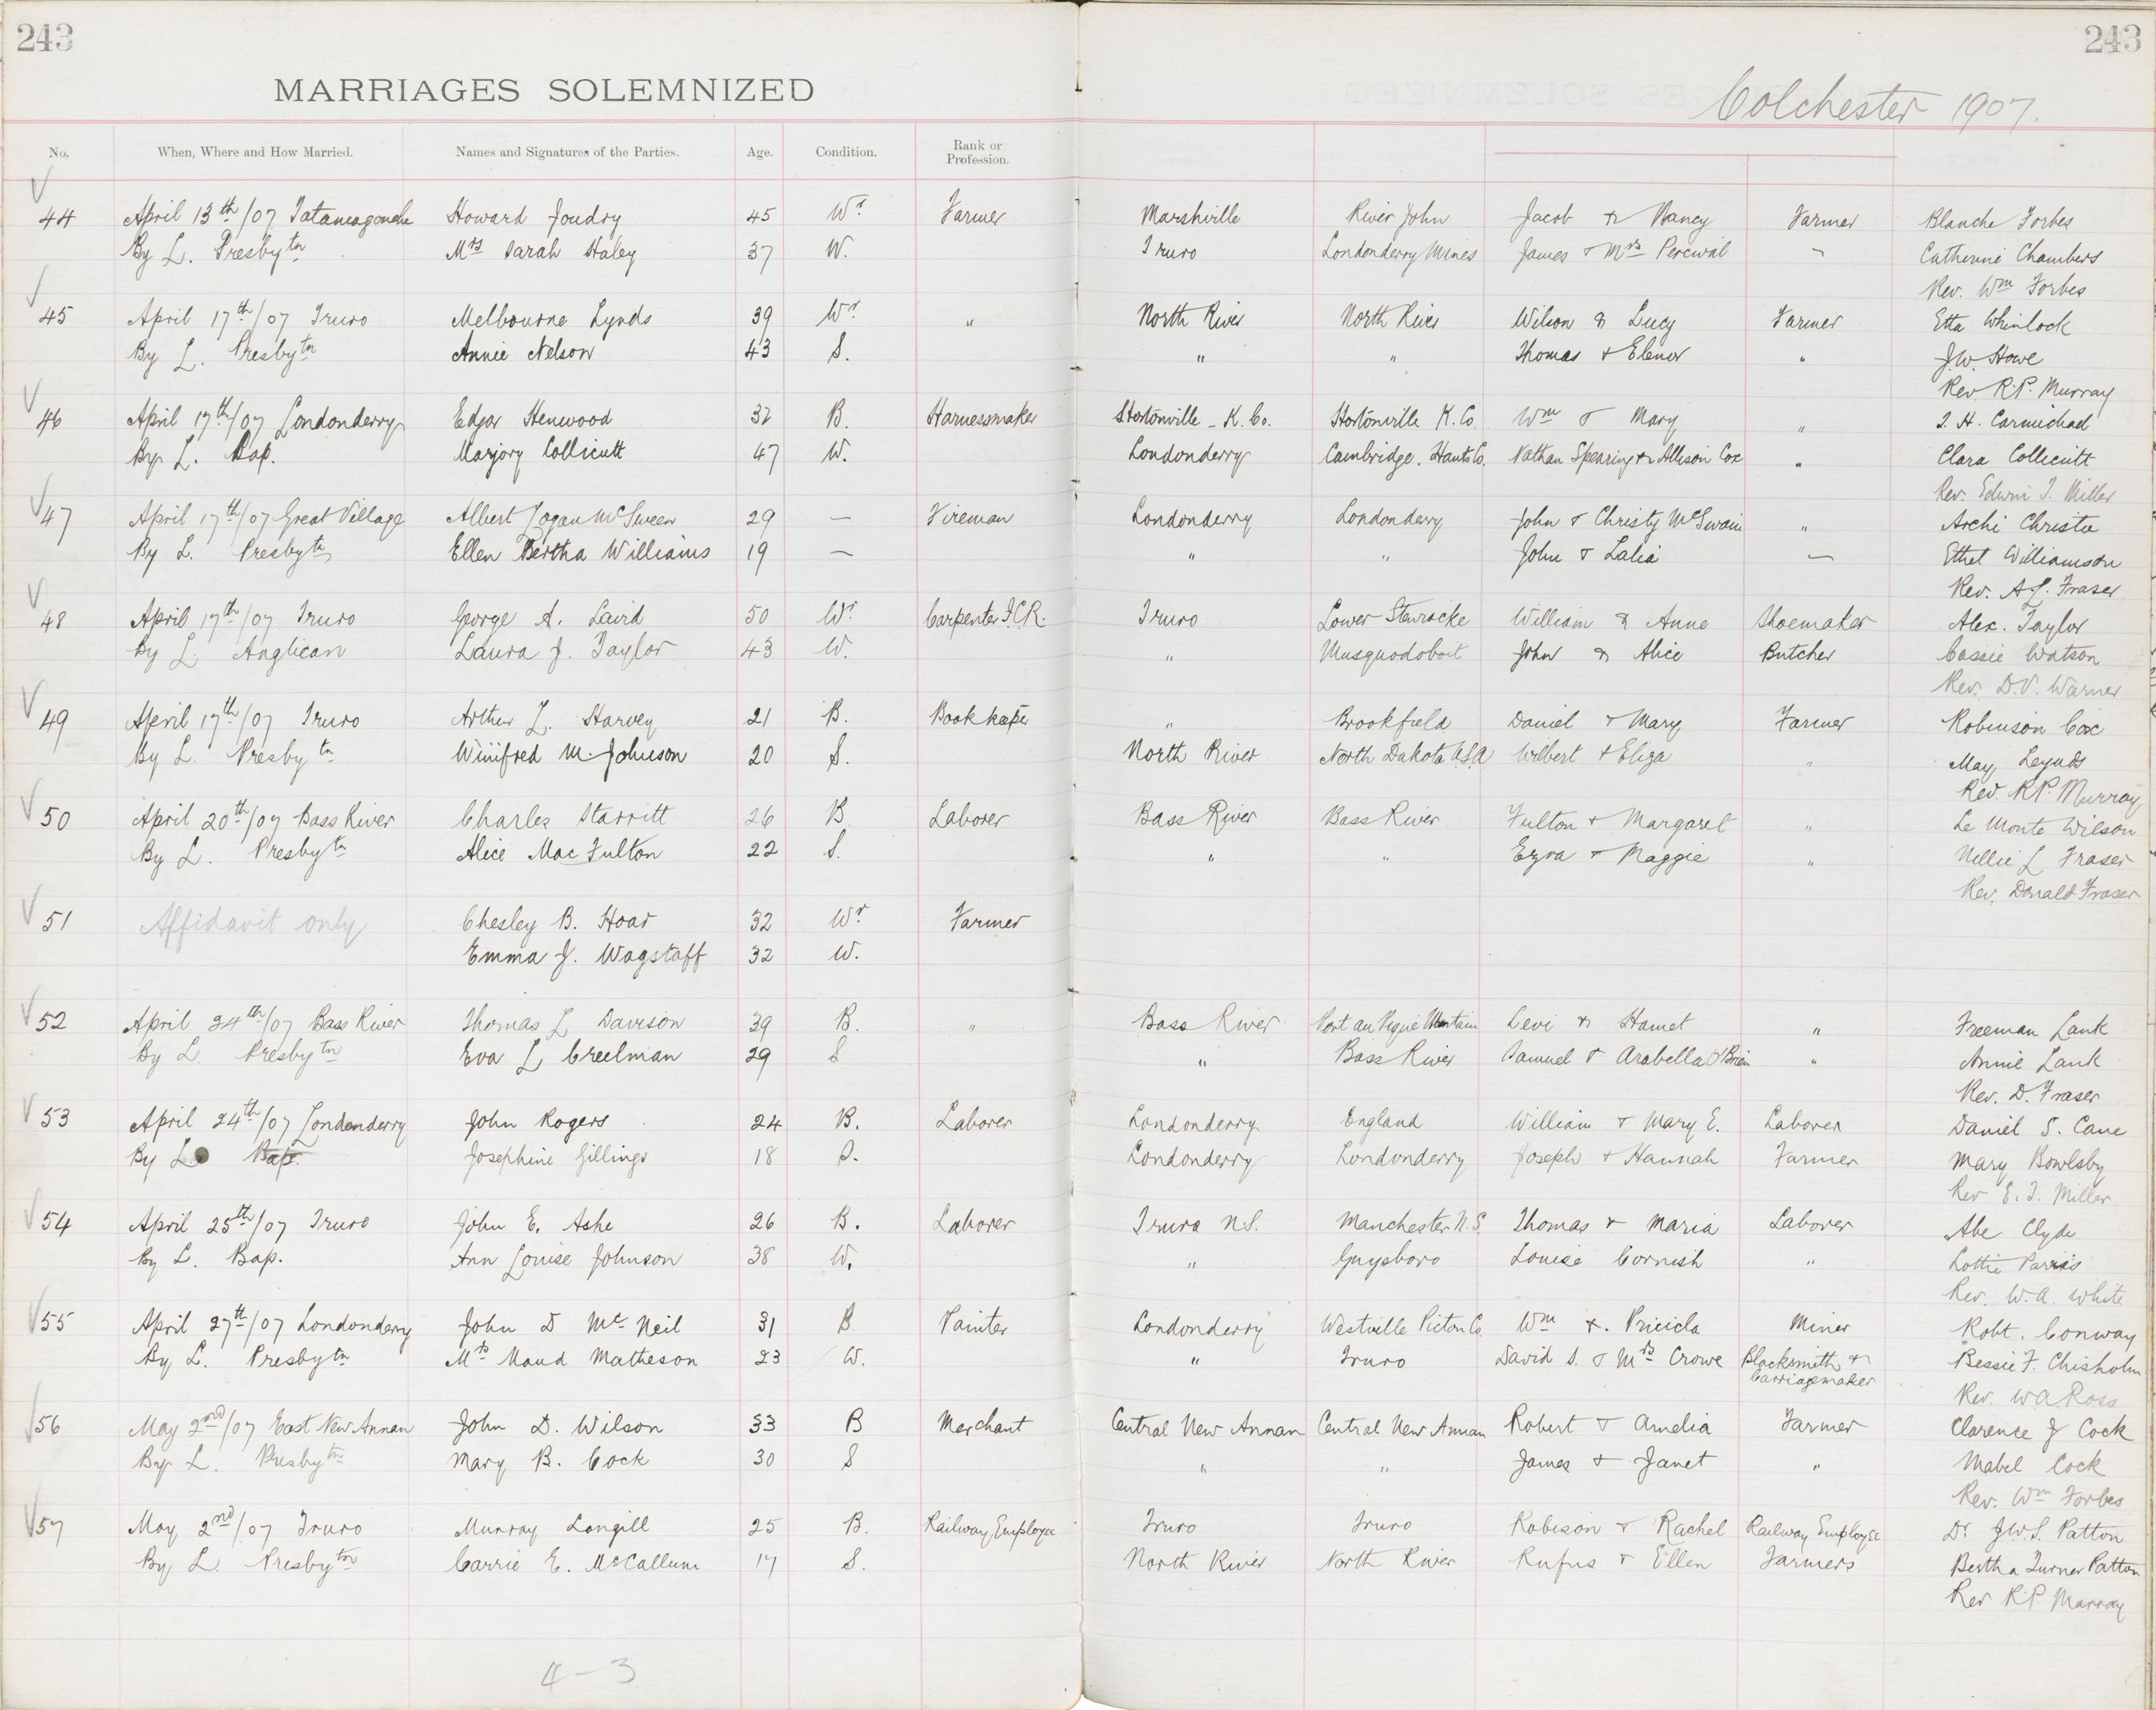 243 243
MARRIAGES SOLEMNIZED Colchester 1907.
No. When, Where and How Married. Names and Signatures of the Parties. Age. Condition. Rank or Profession.
44 April 13th/07 Tatamagouche Howard Joudry 45 Wr Farmer Marshville River John Jacob & Nancy Farmer Blanche Forbes
By L. Presbytn Mrs Sarah Haley 37 W. Truro Londonderry Mines James & Mrs Percival " Catherine Chambers
Rev. Wm Forbes
45 April 17th/07 Truro Melbourne Lynds 39 Wr " North River North River Wilson & Lucy Farmer Etta Whinlock
By L. Presbytn Annie Nelson 43 S. " " Thomas & Elenor " J.W. Howe
Rev R.P. Murray
46 April 17th/07 Londonderry Edgar Henwood 32 B. Harnessmaker Hortonville - K. Co. Hortonville K. Co. Wm & Mary " T. H. Carmichael
By L. Bap. Marjory Collicutt 47 W. Londonderry Cambridge. Hants Co. Nathan Spearing & Allison Cox " Clara Collicutt
Rev. Edwin T. Miller
47 April 17th/07 Great Village Albert Logan McSween 29 — Fireman Londonderry Londonderry John & Christy McSwain " Archi Christie
By L. Presbytn Ellen Bertha Williams 19 — " " John & Lalia — Ethel Williamson
Rev. A.L. Fraser
48 April 17th/07 Truro George A. Laird 50 Wr. Carpenter I.C.R. Truro Lower Stewiacke William & Anne Shoemaker Alex. Taylor
By L. Anglican Laura J. Taylor 43 W. " Musquodoboit John & Alice Butcher Cassie Watson
Rev. D.V. Warner
49 April 17th/07 Truro Arthur L. Harvey 21 B. Bookkeeper " Brookfield Daniel & Mary Farmer Robinson Cox
By L. Presbytn Winifred M. Johnson 20 S. North River North Dakota U.S.A Wilbert & Eliza " May Leynds
Rev. R.P. Murray
50 April 20th/07 Bass River Charles Starritt 26 B Laborer Bass River Bass River Fulton & Margaret " Le Monte Wilson
By L. Presbytn Alice Mac Fulton 22 S. " " Ezra & Maggie " Nellie L Fraser
Rev. Donald Fraser
51 Affidavit only Chesley B. Hoar 32 Wr Farmer
Emma J. Wagstaff 32 W.
52 April 24th/07 Bass River Thomas L Davison 39 B. " Bass River Port au Pique Mountain Levi & Hamet " Freeman Lank
By L. Presbytn Eva L Creelman 29 S " Bass River Samuel & Arabella O'Brien " Annie Lank
Rev. D. Fraser
53 April 24th/07 Londonderry John Rogers 24 B. Laborer Londonderry England William & Mary E. Laborer Daniel S. Cane
By L. Bap. Josephine Gillings 18 S. Londonderry Londonderry Joseph & Hannah Farmer Mary Bowlsby
Rev E. T. Miller
54 April 25th/07 Truro John E. Ashe 26 B. Laborer Truro N.S. Manchester N.S. Thomas & Maria Laborer Abe Clyde
By L. Bap. Ann Louise Johnson 38 W. " Guysboro Louise Cornish " Lottie Parris
Rev. W.A. White
55 April 27th/07 Londonderry John D McNeil 31 B. Painter Londonderry Westville Pictou Co. Wm &. Pricicla Miner Robt. Conway
By L. Presbytn Mrs Maud Matheson 23 W. " Truro David S. & Mrs Crowe Blacksmith & Carriagemaker Bessie F. Chisholm
Rev. W A Ross
56 May 2nd/07 East New Annan John D. Wilson 33 B Merchant Central New Annan Central New Annan Robert & Amelia Farmer Clarence J Cock
By L. Presbytn Mary B. Cock 30 S " " James & Janet " Mabel Cock
Rev. Wm Forbes
57 May 2nd/07 Truro Murray Langill 25 B. Railway Employee Truro Truro Robison & Rachel Railway Employee Dr J.W.S. Patton
By L. Presbytn Carrie E. McCallum 17 S. North River North River Rufus & Ellen Farmers Bertha Turner Patton
Rev R.P. Murray
4-3